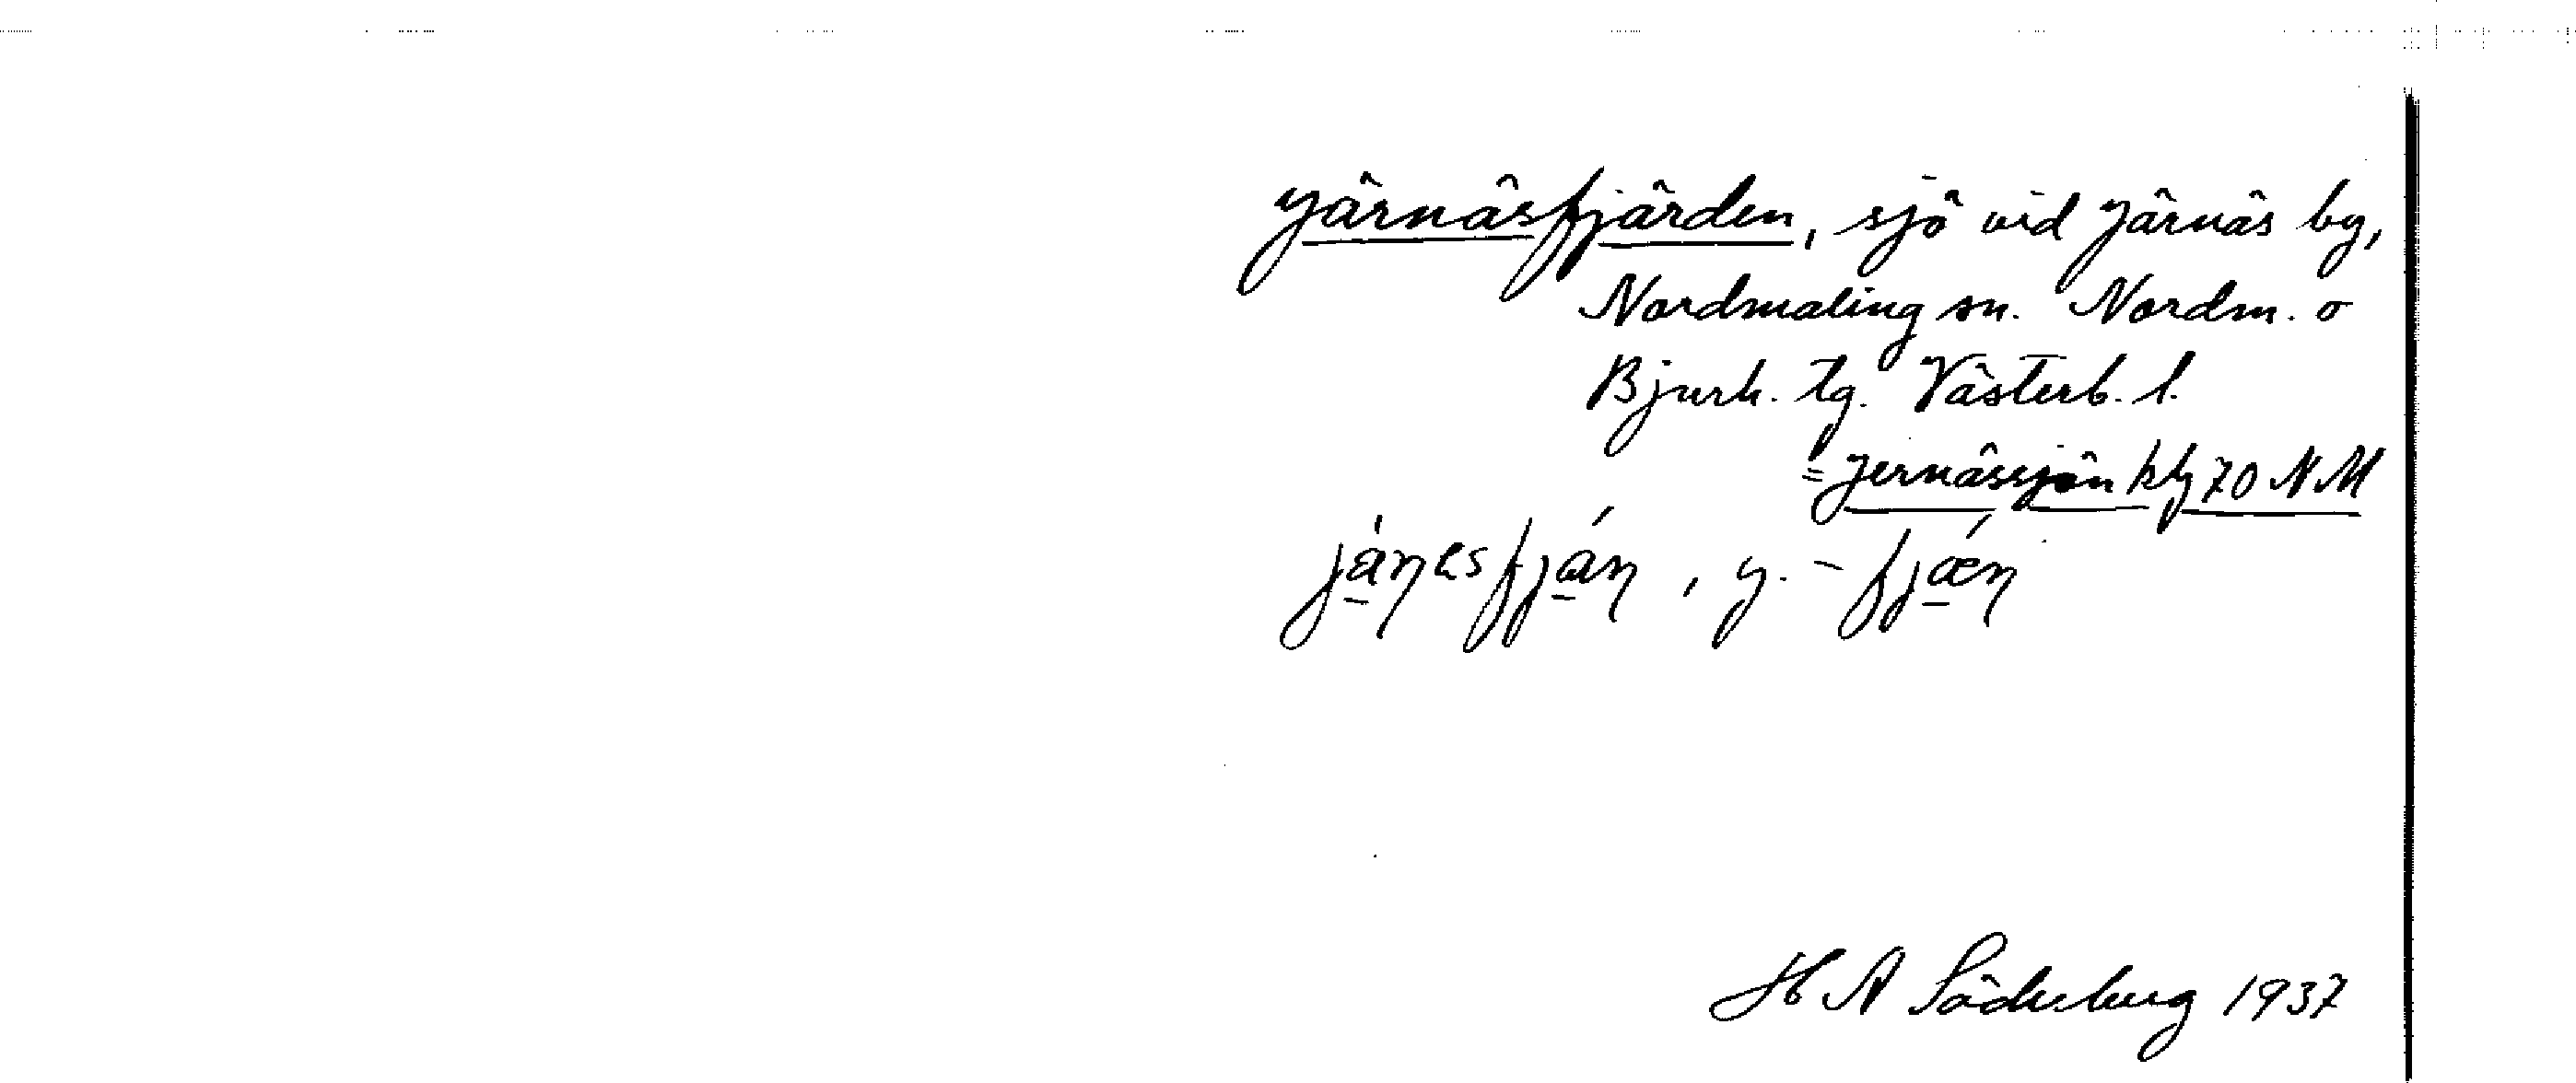 Järnäsfjärden, sjö vid Järnäs by,
Nordmaling sn. Nordm. o
Bjurh. tg. Västerb. l.
= Jernässjön kbl 70 NM
jà̱ṇesfjá̱ṇ, y. - fjǽ̱ṇ
H A Söderberg 1937